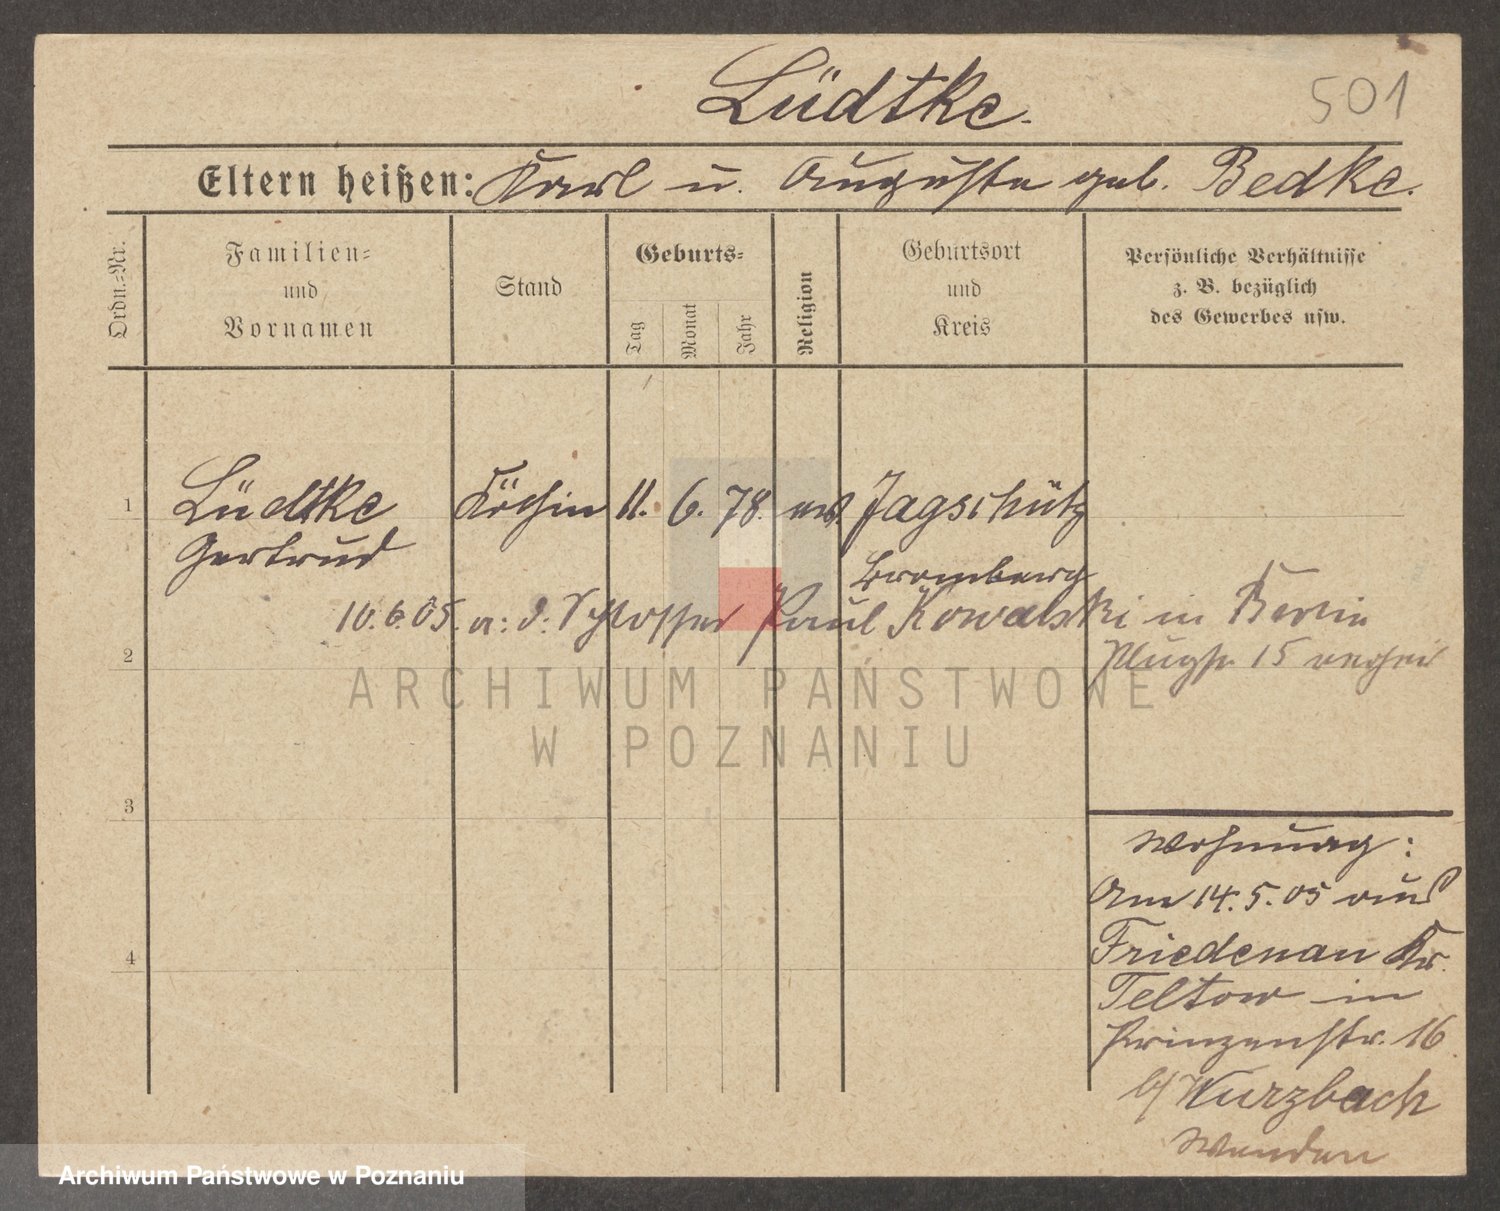 Lüdtke.
501
Eltern heißen: Karl u. Auguste geb. Bedke.
Ordn.-Nr.
Familien-
und
Vornamen
Stand
Geburts-
Tag
Monat
Jahr
Religion
Geburtsort
und
Kreis
Persönliche Verhältnisse
z. B. bezüglich
des Gewerbes usw.
1
Lüdtke Köchin 11. 6. 78. ev. Jagschütz
Gertrud
Bromberg
10.6.05. a: d: Schlosser Paul Kowalski in Berlin
15
2
ARCHIWUM PAŃSTWOWE
W POZNANIU
3
Wohnung:
Am 14.5.05 aus
4
Friedenau Kr.
Teltow in
Prinzenstr. 16
b/ Wurzbach
Wenden
Archiwum Państwowe w Poznaniu